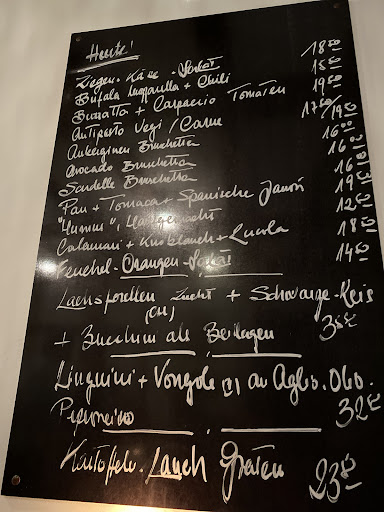 Heute!
Ziegen-Käse-Salat 18.50
Bufala Mozzarella + Chili 15.50
Burratta + Carpaccio Tomaten 19.50
Antipasto Vegi / Carne 17.50/19.50
Auberginen Bruschetta 16.-
Avocado Bruschetta 16.-
Sardelle Bruschetta 16.-
Pan + Tomaca + Spanische Jamón 19.50
"Humus", Hausgemacht 12.50
Calamari + Knoblauch + Rucola 18.50
Fenchel-Orangen-Salat 14.50
Lachsforellen Zucht + Schwarze-Reis
(CH)
+ Zucchini als Beilagen 35.-
Linguini + Vongole (I) an Aglio. Olio.
Peperoncino 32.-
Kartoffeln-Lauch Gratin 23.-